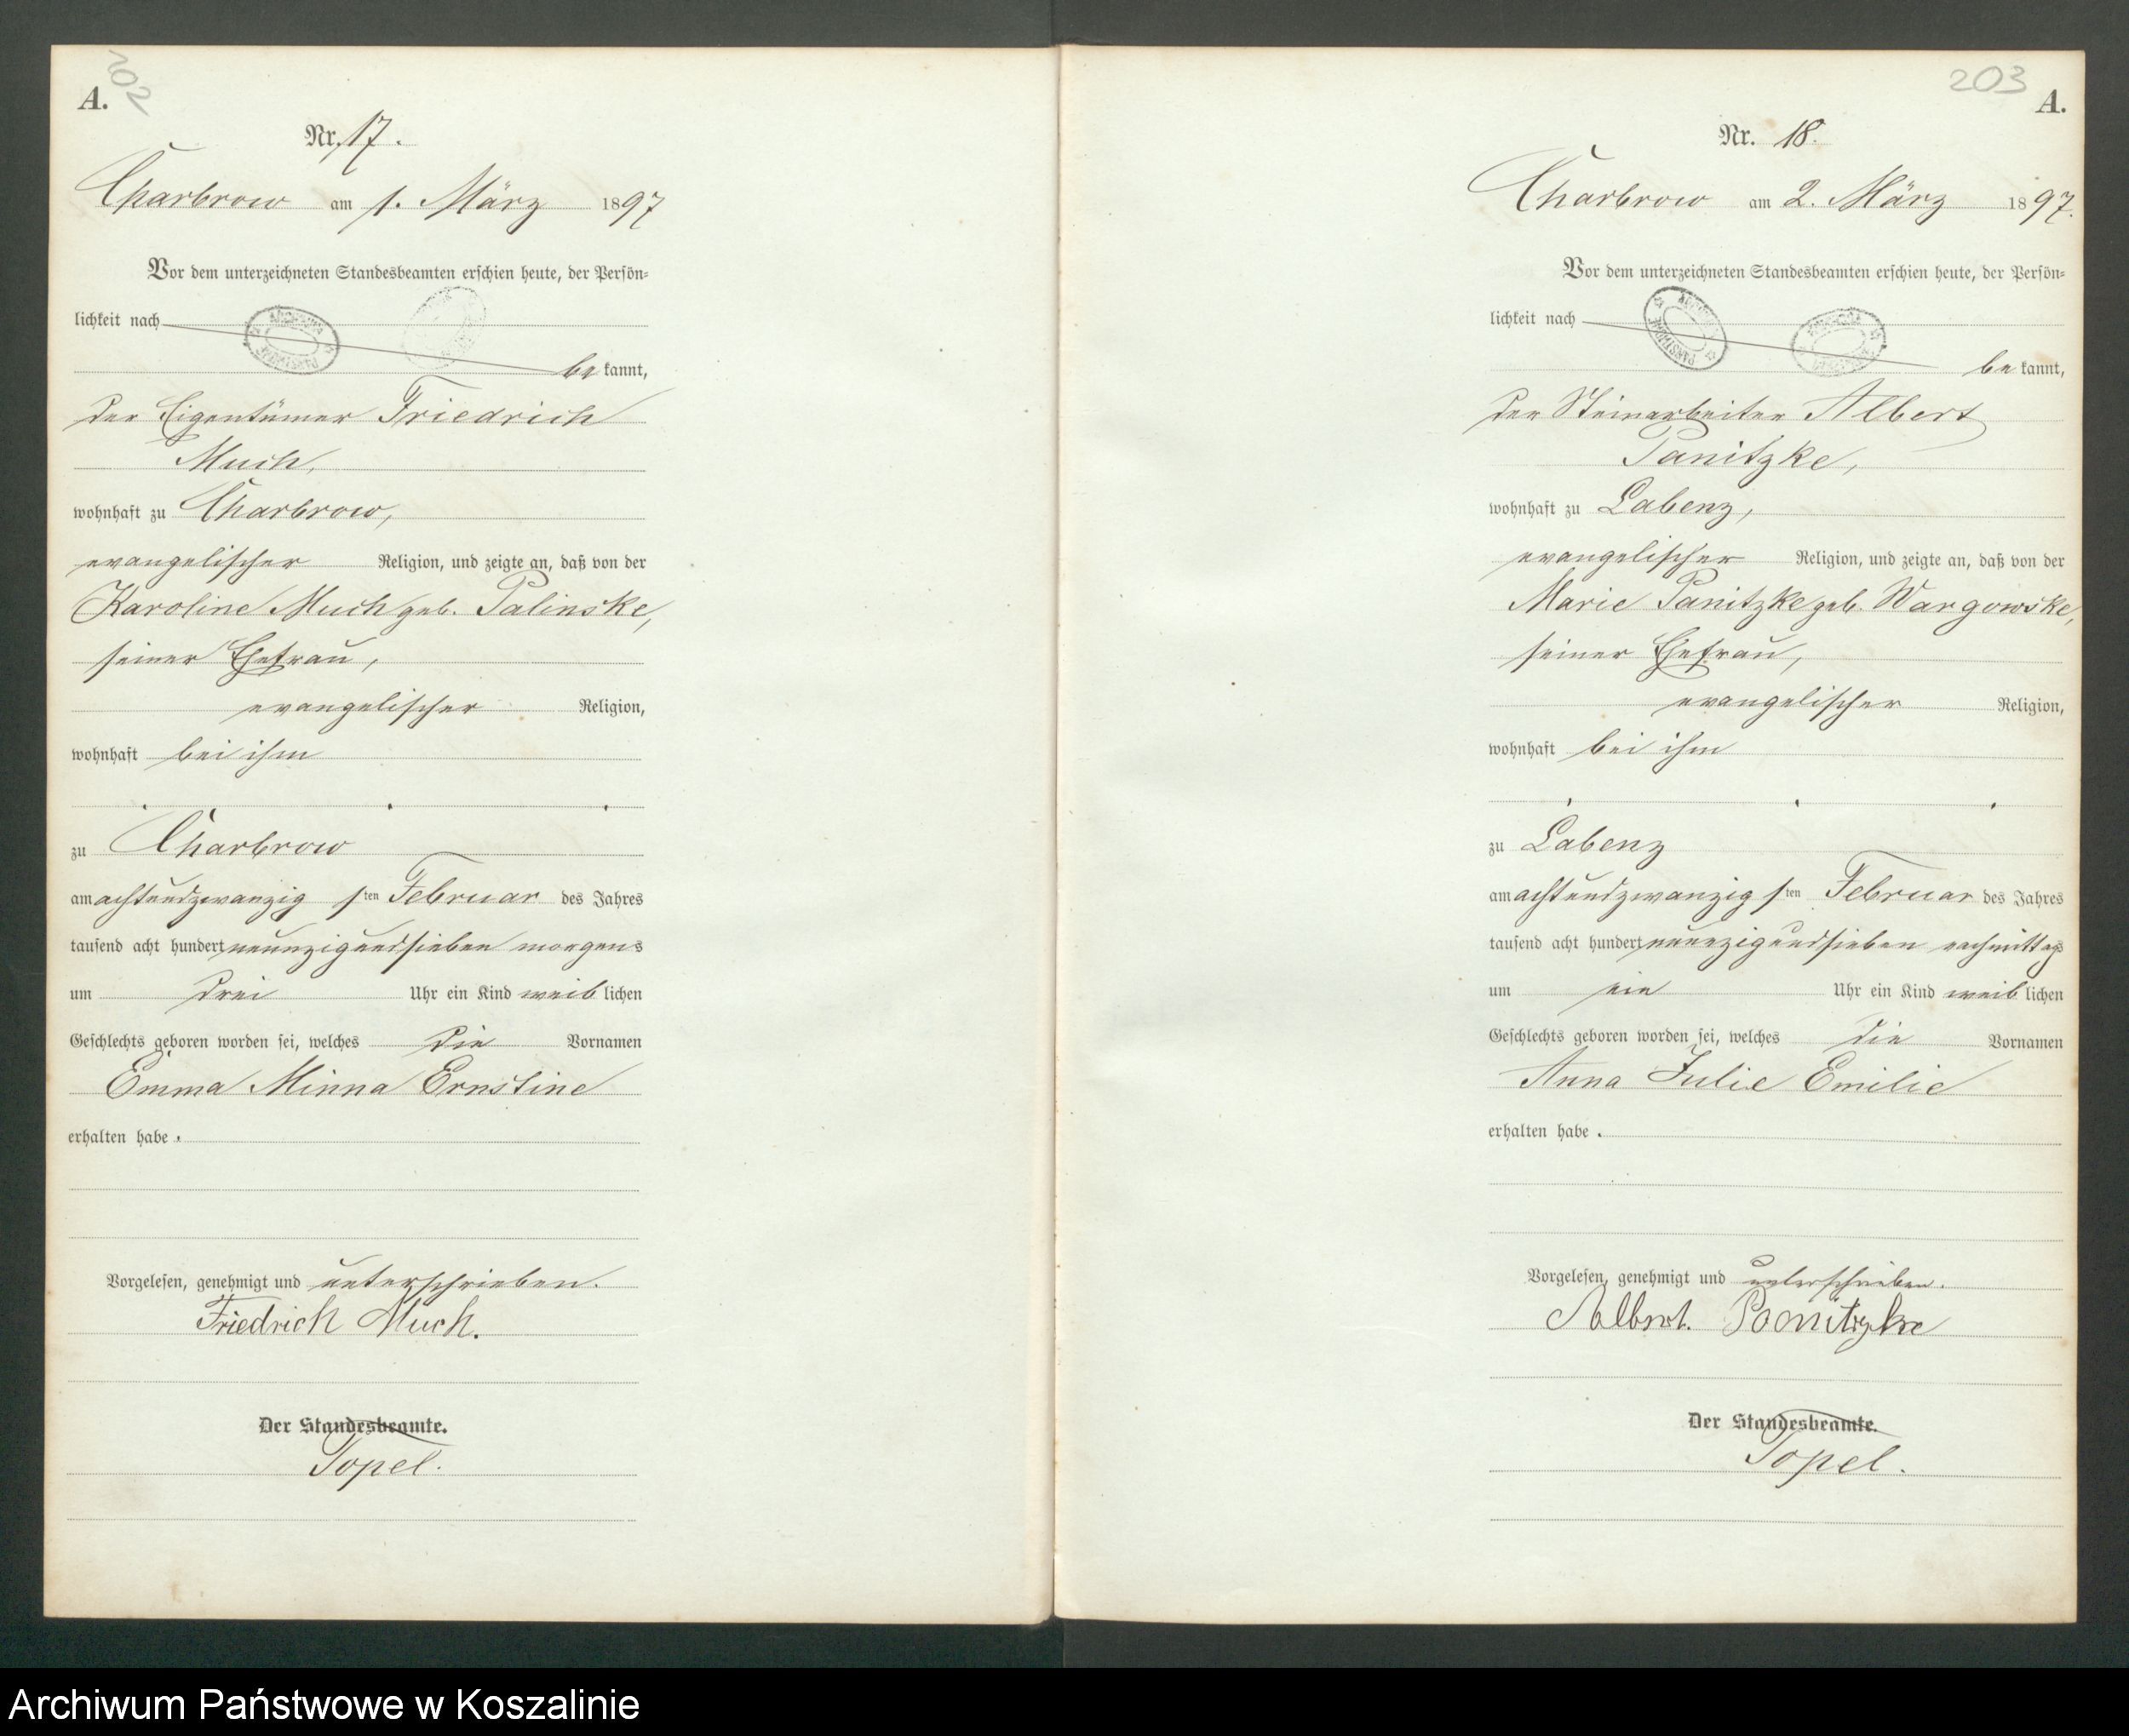 202
A.
Nr. 17.
Charbrow am 1. März 1897
Vor dem unterzeichneten Standesbeamten erschien heute, der Persön-
lichkeit nach
be kannt,
der Eigentümer Friedrich
Much,
wohnhaft zu Charbrow,
evangelischer Religion, und zeigte an, daß von der
Karoline Much geb. Palinske,
seiner Ehefrau,
evangelischer Religion,
wohnhaft bei ihm
zu Charbrow
am achtundzwanzigsten Februar des Jahres
tausend acht hundert neunzigundsieben morgens
um drei Uhr ein Kind weiblichen
Geschlechts geboren worden sei, welches die Vornamen
Emma Minna Ernstine
erhalten habe.
Vorgelesen, genehmigt und unterschrieben.
Friedrich Much.
Der Standesbeamte.
Topel.
203
A.
Nr. 18.
Charbrow am 2. März 1897.
Vor dem unterzeichneten Standesbeamten erschien heute, der Persön-
lichkeit nach
be kannt,
der Steinarbeiter Albert
Panitzke,
wohnhaft zu Labenz,
evangelischer Religion, und zeigte an, daß von der
Marie Panitzke geb. Wargowske,
seiner Ehefrau,
evangelischer Religion,
wohnhaft bei ihm
zu Labenz
am achtundzwanzigsten Februar des Jahres
tausend acht hundert neunzigundsieben nachmittags
um ein Uhr ein Kind weiblichen
Geschlechts geboren worden sei, welches die Vornamen
Anna Julie Emilie
erhalten habe.
Vorgelesen, genehmigt und unterschrieben.
Albert. Panitzke
Der Standesbeamte.
Topel.
Archiwum Państwowe w Koszalinie